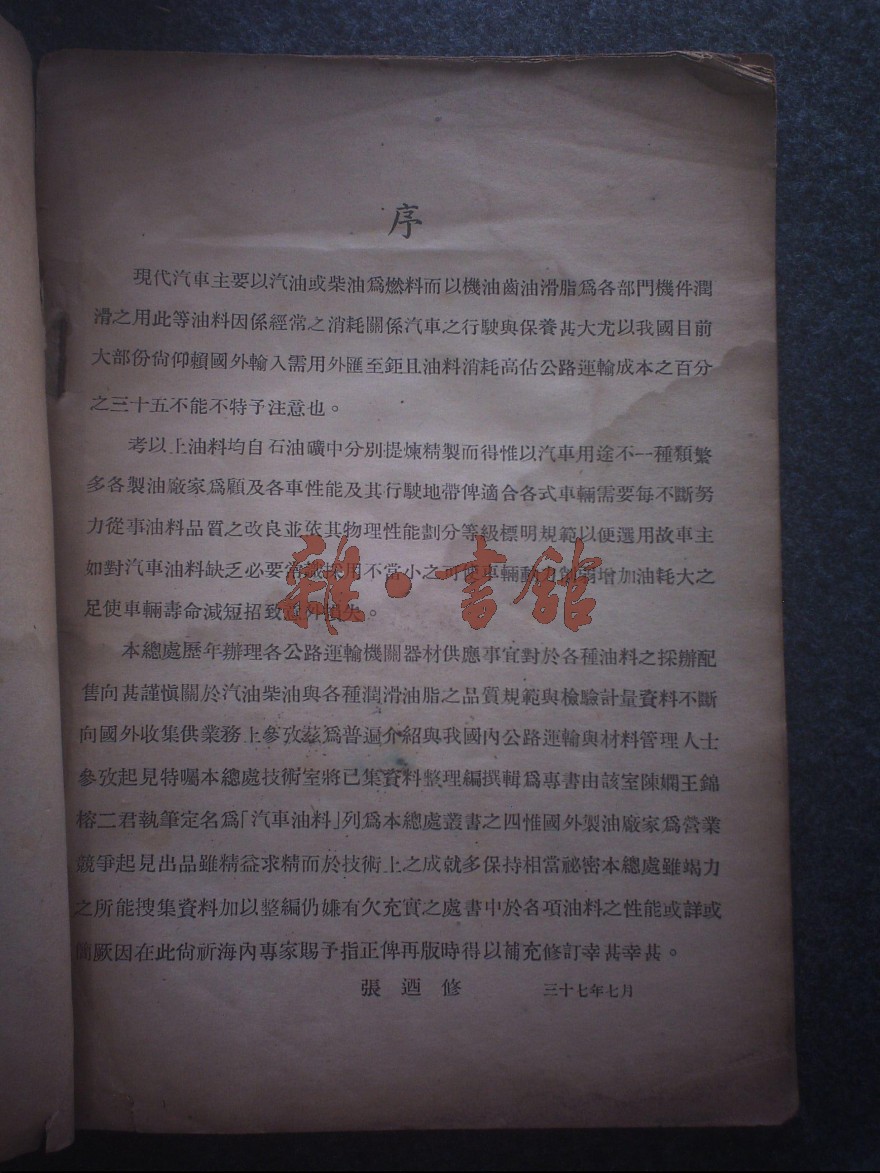 序
現代汽車主要以汽油或柴油爲燃料而以機油齒油滑脂爲各部門機件潤
滑之用此等油料因係經常之消耗關係汽車之行駛與保養甚大尤以我國目前
大部份尙仰賴國外輸入需用外匯至鉅且油料消耗高佔公路運輸成本之百分
之三十五不能不特予注意也。
考以上油料均自石油礦中分別提煉精製而得惟以汽車用途不一種類繁
多各製油廠家爲顧及各車性能及其行駛地帶俾適合各式車輛需要每不斷努
力從事油料品質之改良並依其物理性能劃分等級標明規範以便選用故車主
如對汽車油料缺乏必要常識採用不當小之可使車輛動力削弱增加油耗大之
足使車輛壽命減短招致意外損失。
本總處歷年辦理各公路運輸機關器材供應事宜對於各種油料之採辦配
售向甚謹愼關於汽油柴油與各種潤滑油脂之品質規範與檢驗計量資料不斷
向國外收集供業務上參攷茲爲普遍介紹與我國內公路運輸與材料管理人士
參攷起見特囑本總處技術室將已集資料整理編撰輯爲專書由該室陳嫻王錦
榕二君執筆定名爲「汽車油料」列爲本總處叢書之四惟國外製油廠家爲營業
競爭起見出品雖精益求精而於技術上之成就多保持相當祕密本總處雖竭力
之所能搜集資料加以整編仍嫌有欠充實之處書中於各項油料之性能或詳或
簡厥因在此尙祈海內專家賜予指正俾再版時得以補充修訂幸甚幸甚。
張迺修 三十七年七月
雜·書館